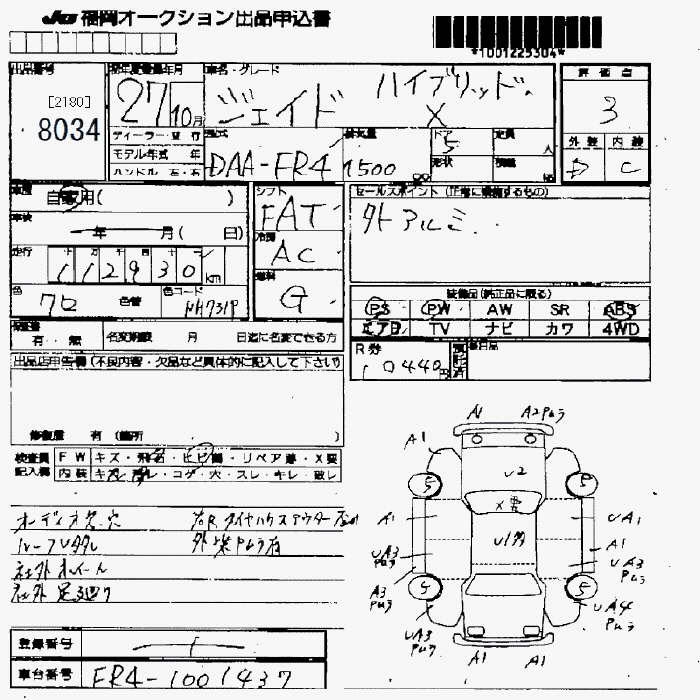 JU 福岡オークション出品申込書
*1001225304*
出品番号
[2180]
8034
初年度登録年月
27年 10月
ディーラー・並行
モデル年式 年
ハンドル 左・右
車名・グレード
ジェイド ハイブリッド X
型式
DAA-FR4
排気量
1500 cc
ドア
5
形状
定員
人
積載
評価点
3
外装 内装
D C
車歴
自家用( )
車検
年 月( 日)
走行
112930 km
色
クロ
色替
色コード
NH731P
シフト
FAT
冷房
AC
燃料
G
セールスポイント (正常に装備するもの)
外アルミ
装備品(純正品に限る)
PS PW AW SR ABS
エアB TV ナビ カワ 4WD
有・無
名変期限 月 日迄に名変できる方
R券
10440円
出品店申告欄(不良内容・欠品など具体的に記入して下さい)
修復歴 有 (箇所 )
検査員
記入欄
FW キズ・飛石・ヒビ・リペア跡・X要
内装 キズ・コゲ・穴・スレ・キレ・破レ
オーディオ欠.穴
ルーフUダレ
社外ホイール
社外足廻り
外装Pムラ有
A1 A2Pムラ
A1
U2
5 5
X要
A1 UA1
A1
UA3
Pムラ
UA3
Pムラ
A3
Pムラ
5 5
UA3
Pムラ
UA4
Pムラ
A1 A1
登録番号
車台番号 FR4-1001437